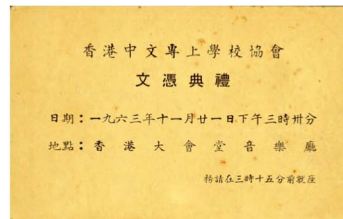 香港中文專上學校協會
文憑典禮
日期：一九六三年十一月廿一日下午三時卅分
地點：香港大會堂音樂廳
務請在三時十五分前就座